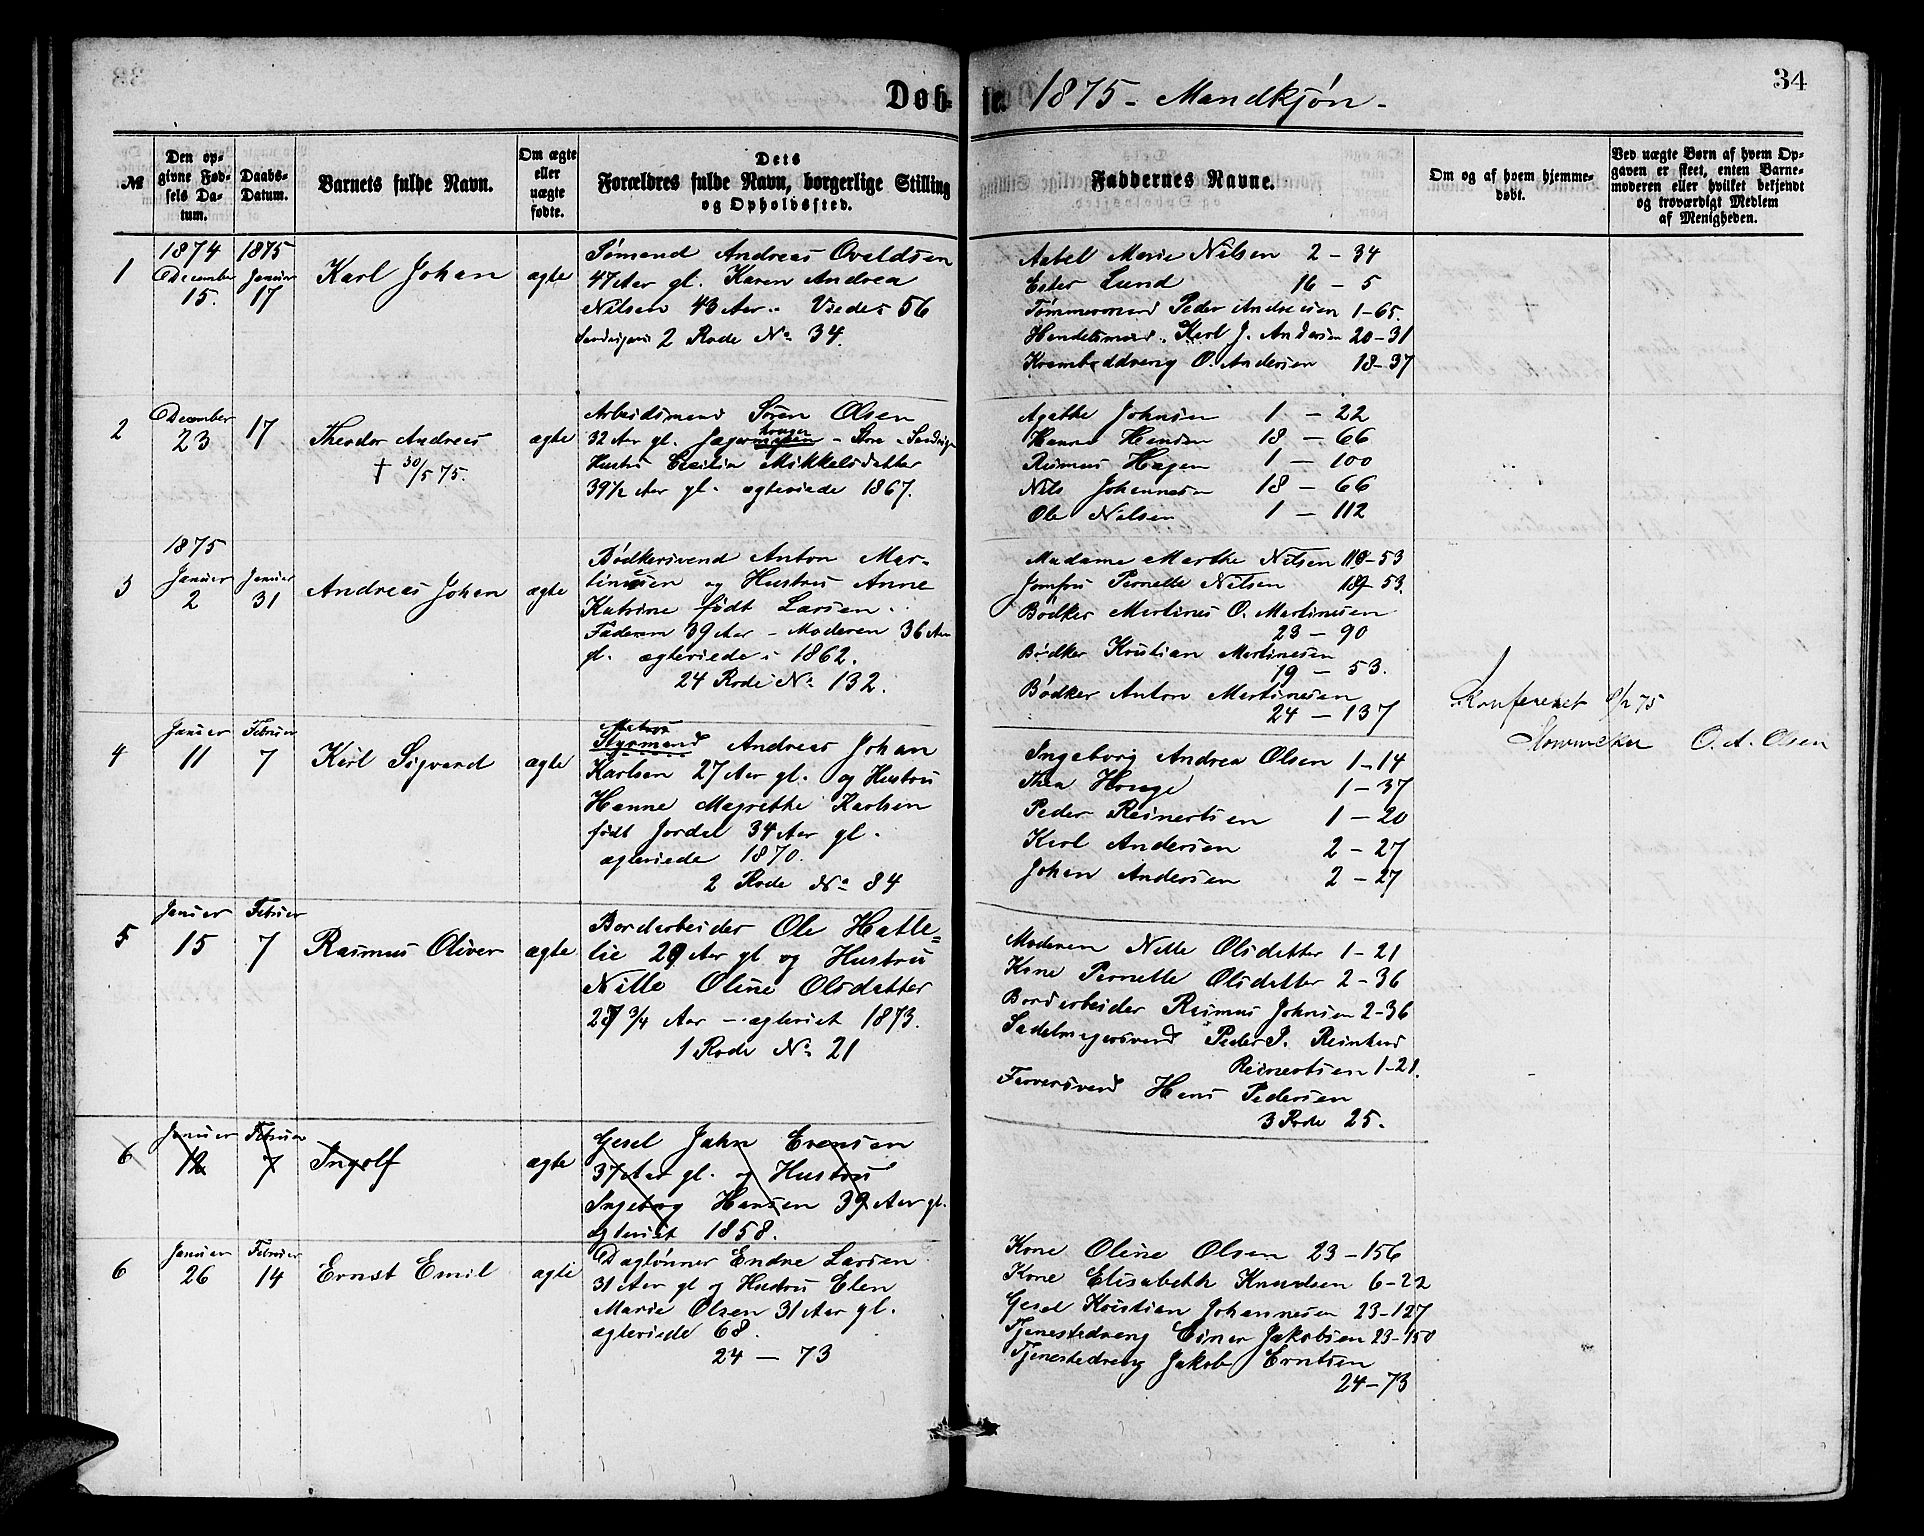 34
Døbte. 1875 - Mandkjøn -
№
Den opgivne Fødsels Datum.
Daabs-Datum.
Barnets fulde Navn.
Om ægte eller uægte fødte.
Dets Forældres fulde Navn, borgerlige Stilling og Opholdssted.
Faddernes Navne.
Om og af hvem hjemmedøbt.
Ved uægte Børn af hvem Opgaven er skeet, enten Barnemoderen eller hvilket bekjendt og troværdigt Medlem af Menigheden.
1
1874 December 15.
1875 Januar 17
Karl Johan
ægte
Sømand Andreas Ovaldsen
47 Aar gl. Karen Andrea
Nilsen 43 Aar. Viede 56
2 Rode No 34.
Aabel Marie Nilsen 2 - 34
Ester Lund 16 - 5
Tømmermand Peder Andreasen 1-65.
Handelsmand Karl J. Andersen 20-31
Kramboddreng O. Andersen 18-37
2
December 23
17
Theodor Andreas
† 30/5 75.
ægte
Arbeidsmand Søren Olsen
32 Aar gl. Store Sandvigen
Hustru Cecilia Mikkelsdatter
39 1/2 Aar gl. ægteviede 1867.
Agathe Johnsen 1 - 22
Hanna Hansen 18 - 66
Rasmus Hagen 1 - 100
Nils Johannesen 18 - 66
Ole Nilsen 1 - 112
3
1875 Januar 2
Januar 31
Andreas Johan
ægte
Bødkersvend Anton Mar-
tinesen og Hustru Anne
Katrine født Larsen.
Faderen 39 Aar - Moderen 36 Aar
gl. ægteviede i 1862.
24 Rode No 132.
Madame Marthe Nilsen 19-53
Jomfru Pernelle Nilsen 19-53.
Bødker Martinus O. Martinesen
23 - 90
Bødker Kristian Martinesen
19 - 53.
Bødker Anton Martinesen
24 - 137
Konfereret 8/2 75
O. A. Olsen
4
Januar 11
Februar 7
Karl Sigvard
ægte
Matros
Styrmand Andreas Johan
Karlsen 27 Aar gl. og Hustru
Hanne Magrethe Karlsen
født Jordal 34 Aar gl.
ægteviede 1870.
2 Rode No 84
Ingeborg Andrea Olsen 1-14
Thea Hauge 1-37
Peder Reinertsen 1-20
Karl Andersen 2-27
Johan Andersen 2-27
5
Januar 15
Februar 7
Rasmus Oliver
ægte
Bordarbeider Ole Hatle=
lie 29 Aar gl og Hustru
Nille Oline Olsdatter
27 3/4 Aar - ægteviet 1873.
1 Rode No 21
Moderen Nille Olsdatter 1-21
Kone Pernelle Olsdatter 2-36
Bordarbeider Rasmus Johnsen 2-36
Sadelmagersvend Peder P. Reinhard
Reinertsen 1-21.
Farversvend Hans Pedersen
3 Rode 25.
6
Januar 12
Februar 7
Ingolf
ægte
Gesel Jahn Evensen
37 Aar gl. og Hustru
Ingeborg Hansen 39 Aar gl.
ægteviet 1858.
6
Januar 26
Februar 14
Ernst Emil
ægte
Daglønner Endre Larsen
31 Aar gl og Hustru Elen
Marie Olsen 31 Aar gl.
ægteviede 68.
24 - 73
Kone Oline Olsen 23-156
Kone Elisabeth Knudsen 6-22
Gesel Kristian Johannesen 23-127
Tjenestedreng Einar Jakobsen 23-150
Tjenestedreng Jakob Erntsen
24-73